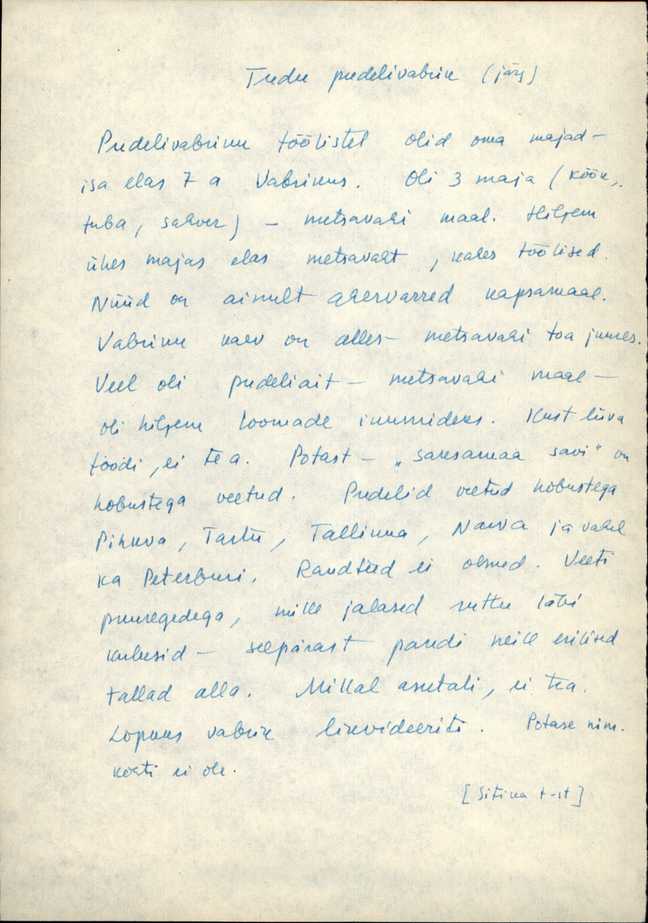 Tudu pudelivabrik (järg)
Pudelivabriku töölistel olid oma majad –
isa elas 7 a vabrikus. Oli 3 maja (köök,
tuba, sahver) – metsavahi maal. Hiljem
ühes majas elas metsavaht, kahes töölised.
Nüüd on ainult ahervarred kapsamaal.
Vabriku kaev on alles – metsavahi toa juures.
Veel oli pudeliait – metsavahi maal –
oli hiljem loomade ruumideks. Kust liiva
toodi, ei tea. Potast – „saksamaa savi" on
hobustega veetud. Pudelid veetud hobustega
Pihkva, Tartu, Tallinna, Narva ja vahel
ka Peterburi. Raudteed ei olnud. Veeti
puuregedega, mille jalased ruttu läbi
kulusid – seepärast pandi neile erilised
tallad alla. Millal asutati, ei tea.
Lõpuks vabrik likvideeriti. Potase nim.
kohti ei ole.
[Sitika t-st]